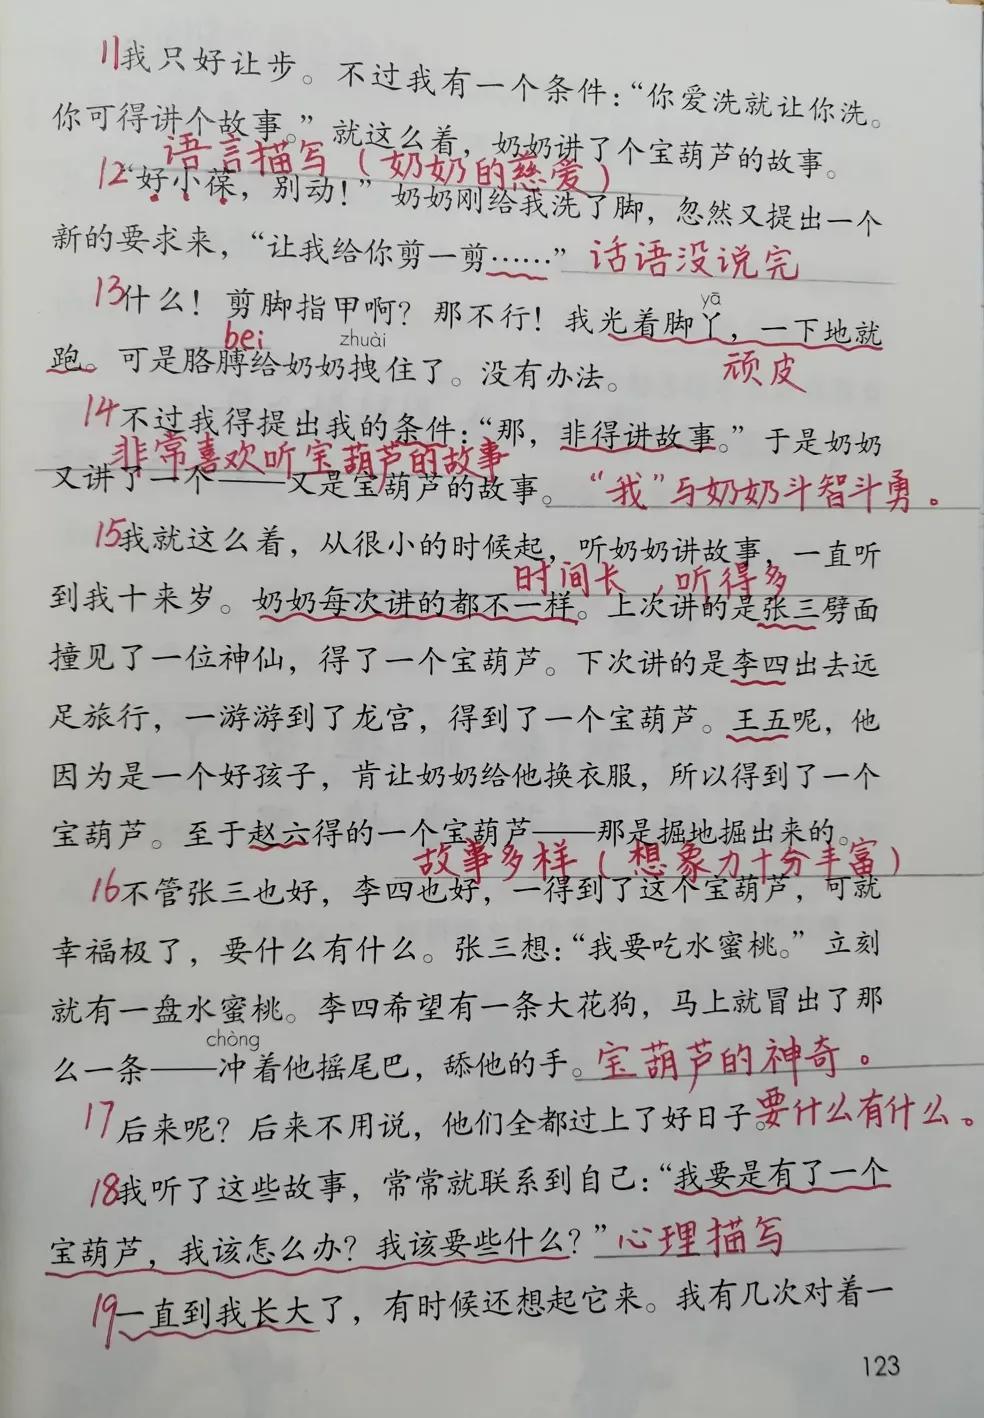 11我只好让步。不过我有一个条件：“你爱洗就让你洗。
你可得讲个故事。”就这么着，奶奶讲了个宝葫芦的故事。
语言描写（奶奶的慈爱）
12“好小葆，别动！”奶奶刚给我洗了脚，忽然又提出一个
新的要求来，“让我给你剪一剪……” 话语没说完
yā
13什么！剪脚指甲啊？那不行！我光着脚丫，一下地就
bei zhuài
跑。可是胳膊给奶奶拽住了。没有办法。 顽皮
14不过我得提出我的条件：“那，非得讲故事。”于是奶奶
非常喜欢听宝葫芦的故事
又讲了一个——又是宝葫芦的故事。“我”与奶奶斗智斗勇。
15我就这么着，从很小的时候起，听奶奶讲故事，一直听
时间长，听得多
到我十来岁。奶奶每次讲的都不一样。上次讲的是张三劈面
撞见了一位神仙，得了一个宝葫芦。下次讲的是李四出去远
足旅行，一游游到了龙宫，得到了一个宝葫芦。王五呢，他
因为是一个好孩子，肯让奶奶给他换衣服，所以得到了一个
宝葫芦。至于赵六得的一个宝葫芦——那是掘地掘出来的。
故事多样（想象力十分丰富）
16不管张三也好，李四也好，一得到了这个宝葫芦，可就
幸福极了，要什么有什么。张三想：“我要吃水蜜桃。”立刻
就有一盘水蜜桃。李四希望有一条大花狗，马上就冒出了那
chòng
么一条——冲着他摇尾巴，舔他的手。宝葫芦的神奇。
17后来呢？后来不用说，他们全都过上了好日子。要什么有什么。
18我听了这些故事，常常就联系到自己：“我要是有了一个
宝葫芦，我该怎么办？我该要些什么？”心理描写
19一直到我长大了，有时候还想起它来。我有几次对着一
123